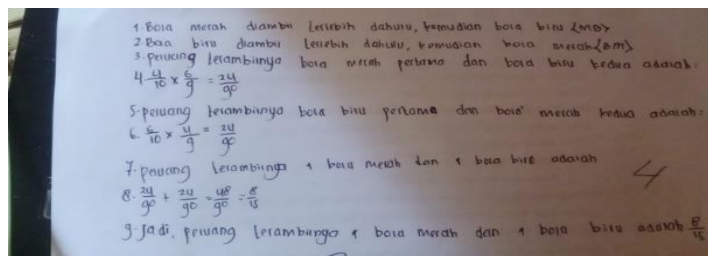 1. Bola merah diambil terlebih dahulu, kemudian bola biru (MB)
2. Bola biru diambil terlebih dahulu, kemudian bola merah (BM)
3. peluang terambilnya bola merah pertama dan bola biru kedua adalah:
4. 4/10 × 6/9 = 24/90
5. peluang terambilnya bola biru pertama dan bola merah kedua adalah:
6. 6/10 × 4/9 = 24/90
7. peluang terambilnya 1 bola merah dan 1 bola biru adalah
4
8. 24/90 + 24/90 = 48/90 = 8/15
9. Jadi, peluang terambilnya 1 bola merah dan 1 bola biru adalah 8/15